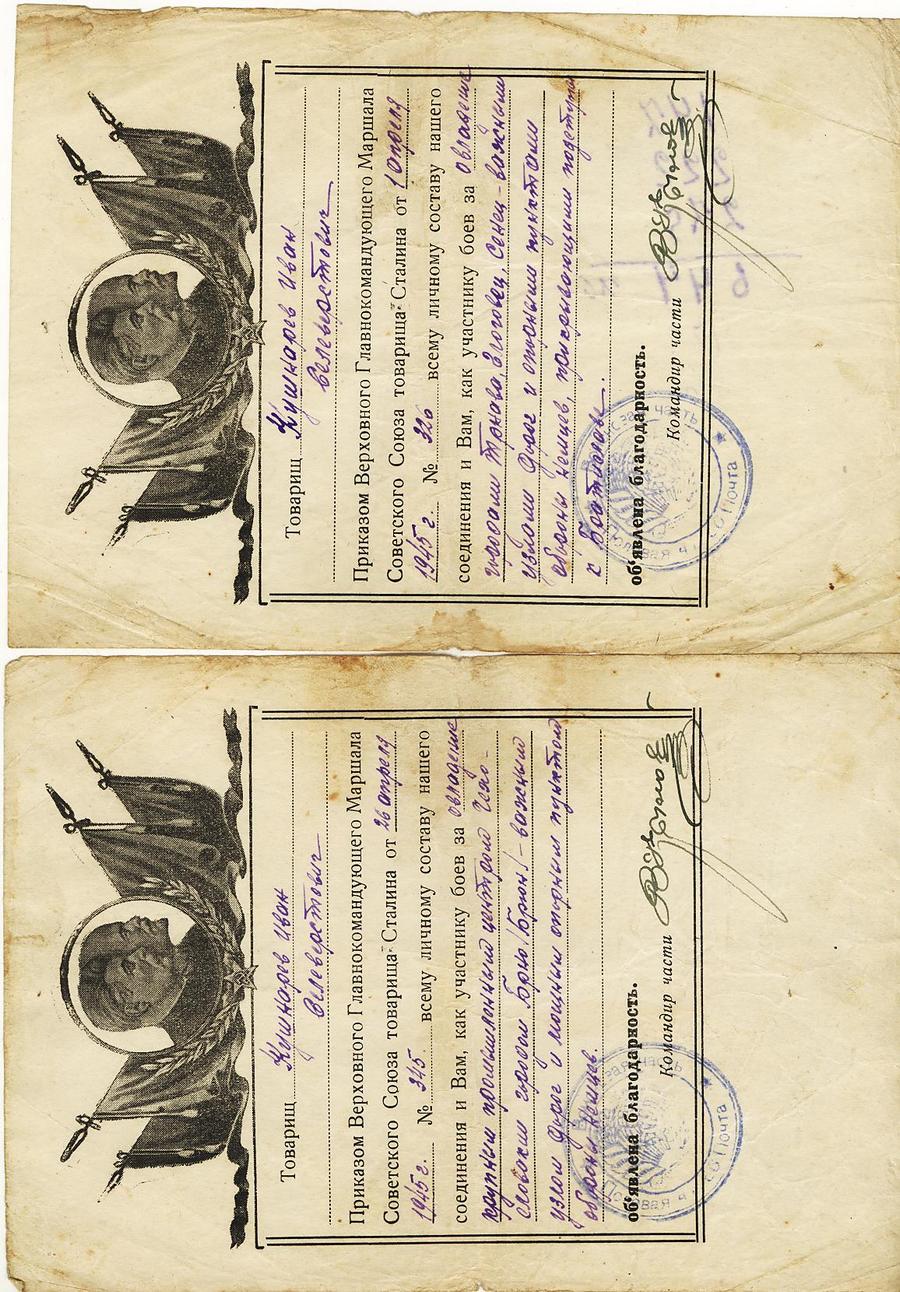 Товарищ Кушнарев Иван
Селеверстович
Приказом Верховного Главнокомандующего Маршала
Советского Союза товарища Сталина от 1 апреля
1945 г. № 326 всему личному составу нашего
соединения и Вам, как участнику боев за овладение
городами Трнава, Глоговец, Сенец - важными
узлами дорог и опорными пунктами
обороны немцев, прикрывающими подступы
к Братиславе.
об'явлена благодарность.
Командир части
Почта
Товарищ Кушнарев Иван
Селеверстович
Приказом Верховного Главнокомандующего Маршала
Советского Союза товарища Сталина от 26 апреля
1945 г. № 345 всему личному составу нашего
соединения и Вам, как участнику боев за овладение
крупным промышленным центром Чехо-
словакии городом Брно /Брюн/ - важным
узлом дорог и мощным опорным пунктом
обороны немцев.
об'явлена благодарность.
Командир части
Почта